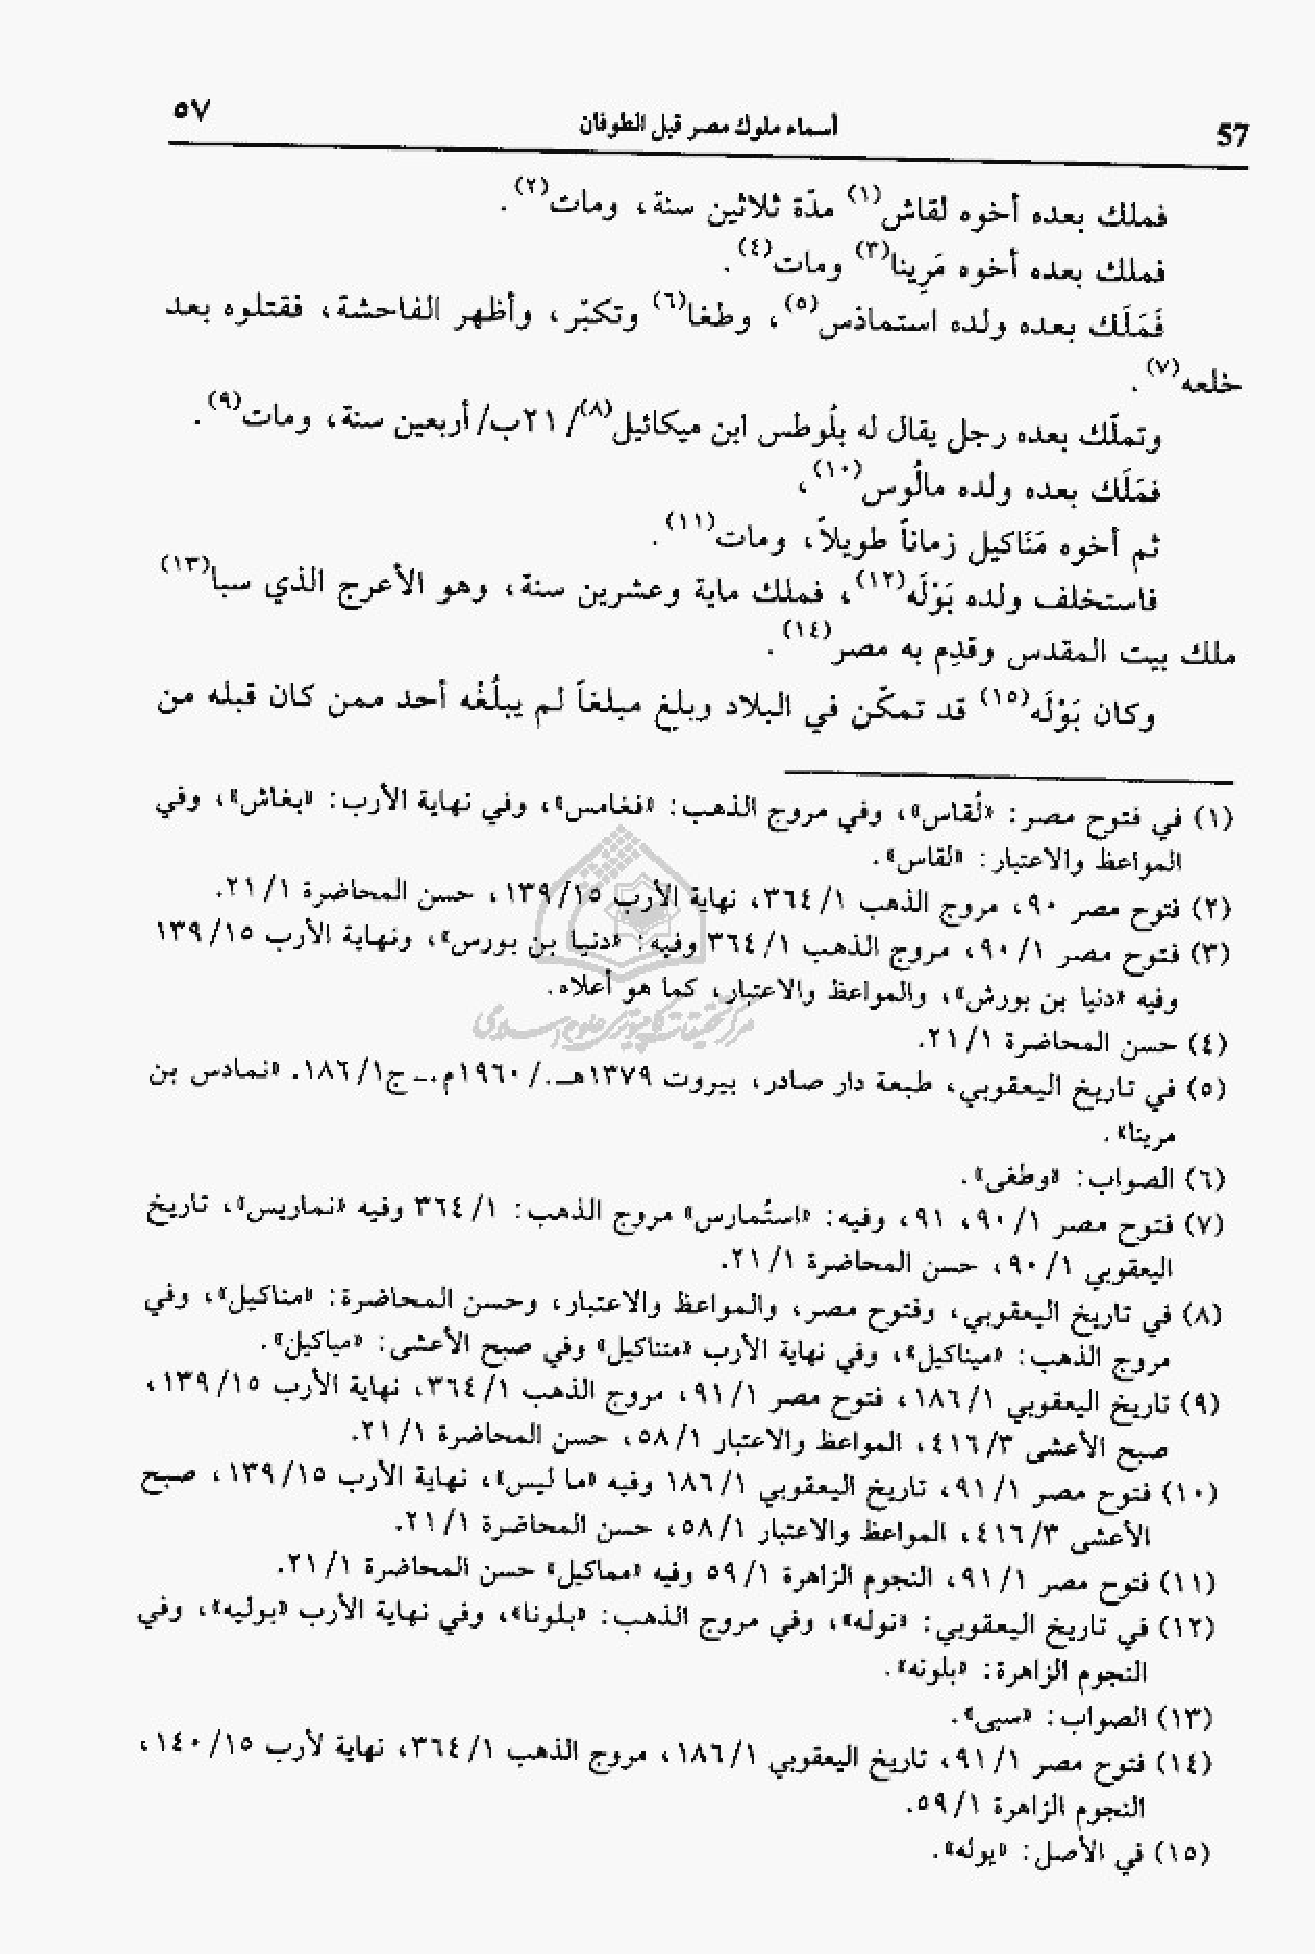 57 أسماء ملوك مصر قبل الطوفان ٥٧
فملك بعده أخوه لقاش(١) مدّة ثلاثين سنة، ومات(٢).
فملك بعده أخوه مَرِينا(٣) ومات(٤).
فَمَلَك بعده ولده استماذس(٥)، وطغا(٦) وتكبّر، وأظهر الفاحشة، فقتلوه بعد
خلعه(٧).
وتملّك بعده رجل يقال له بلُوطس ابن ميكائيل(٨)/ ٢١ب/ أربعين سنة، ومات(٩).
فمَلَك بعده ولده مالُوس(١٠)،
ثم أخوه مَنَاكيل زماناً طويلاً، ومات(١١).
فاستخلف ولده بَوْلَه(١٢)، فملك ماية وعشرين سنة، وهو الأعرج الذي سبا(١٣)
ملك بيت المقدس وقدِم به مصر(١٤).
وكان بَوْلَه(١٥) قد تمكّن في البلاد وبلغ مبلغاً لم يبلُغُه أحد ممن كان قبله من
(١) في فتوح مصر: «لُقاس»، وفي مروج الذهب: «فغامس»، وفي نهاية الأرب: «بغاش»، وفي
المواعظ والاعتبار: «لقاس».
(٢) فتوح مصر ٩٠، مروج الذهب ١/ ٣٦٤، نهاية الأرب ١٥/ ١٣٩، حسن المحاضرة ١/ ٢١.
(٣) فتوح مصر ١/ ٩٠، مروج الذهب ١/ ٣٦٤ وفيه: «دنيا بن بورس»، ونهاية الأرب ١٥/ ١٣٩
وفيه «دنيا بن بورش»، والمواعظ والاعتبار، كما هو أعلاه.
(٤) حسن المحاضرة ١/ ٢١.
(٥) في تاريخ اليعقوبي، طبعة دار صادر، بيروت ١٣٧٩هـ./ ١٩٦٠م.ـ ج١/ ١٨٦. «نمادس بن
مرينا».
(٦) الصواب: «وطغى».
(٧) فتوح مصر ١/ ٩٠، ٩١، وفيه: «استُمارس» مروج الذهب: ١/ ٣٦٤ وفيه «نماريس»، تاريخ
اليعقوبي ١/ ٩٠، حسن المحاضرة ١/ ٢١.
(٨) في تاريخ اليعقوبي، وفتوح مصر، والمواعظ والاعتبار، وحسن المحاضرة: «مناكيل»، وفي
مروج الذهب: «ميناكيل»، وفي نهاية الأرب «متناكيل» وفي صبح الأعشى: «مياكيل».
(٩) تاريخ اليعقوبي ١/ ١٨٦، فتوح مصر ١/ ٩١، مروج الذهب ١/ ٣٦٤، نهاية الأرب ١٥/ ١٣٩،
صبح الأعشى ٣/ ٤١٦، المواعظ والاعتبار ١/ ٥٨، حسن المحاضرة ١/ ٢١.
(١٠) فتوح مصر ١/ ٩١، تاريخ اليعقوبي ١/ ١٨٦ وفيه «ما ليس»، نهاية الأرب ١٥/ ١٣٩، صبح
الأعشى ٣/ ٤١٦، المواعظ والاعتبار ١/ ٥٨، حسن المحاضرة ١/ ٢١.
(١١) فتوح مصر ١/ ٩١، النجوم الزاهرة ١/ ٥٩ وفيه «مماكيل» حسن المحاضرة ١/ ٢١.
(١٢) في تاريخ اليعقوبي: «نوله»، وفي مروج الذهب: «بلونا»، وفي نهاية الأرب «بوليه»، وفي
النجوم الزاهرة: «بلونه».
(١٣) الصواب: «سبى».
(١٤) فتوح مصر ١/ ٩١، تاريخ اليعقوبي ١/ ١٨٦، مروج الذهب ١/ ٣٦٤، نهاية لأرب ١٥/ ١٤٠،
النجوم الزاهرة ١/ ٥٩.
(١٥) في الأصل: «يوله».